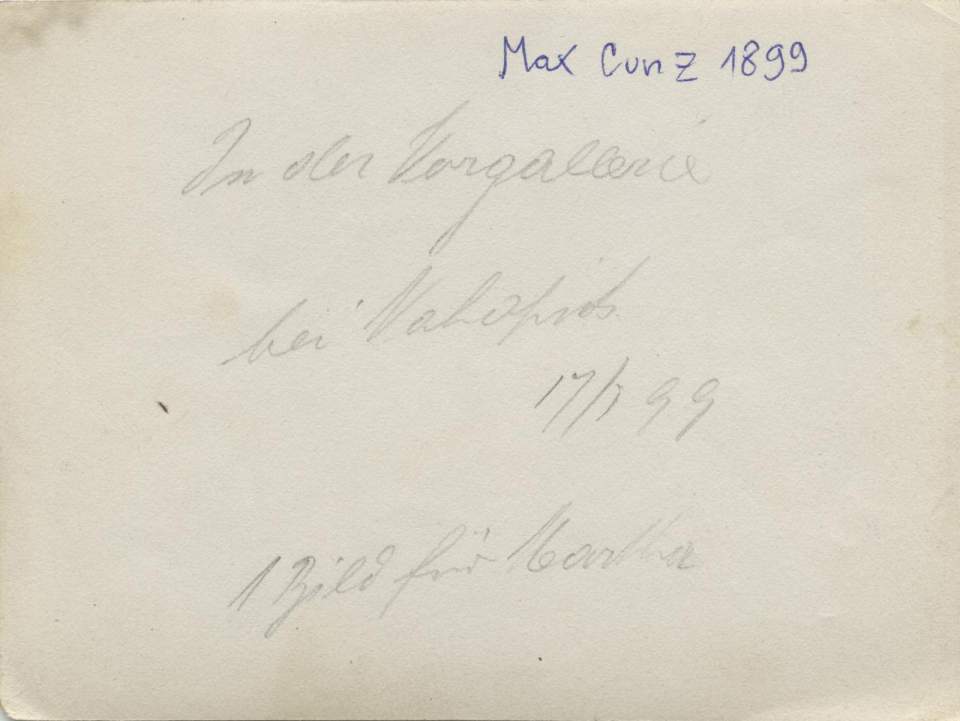 Max Cunz 1899
In der Vorgallerie
bei
17/ 99
1 Bild für Martha